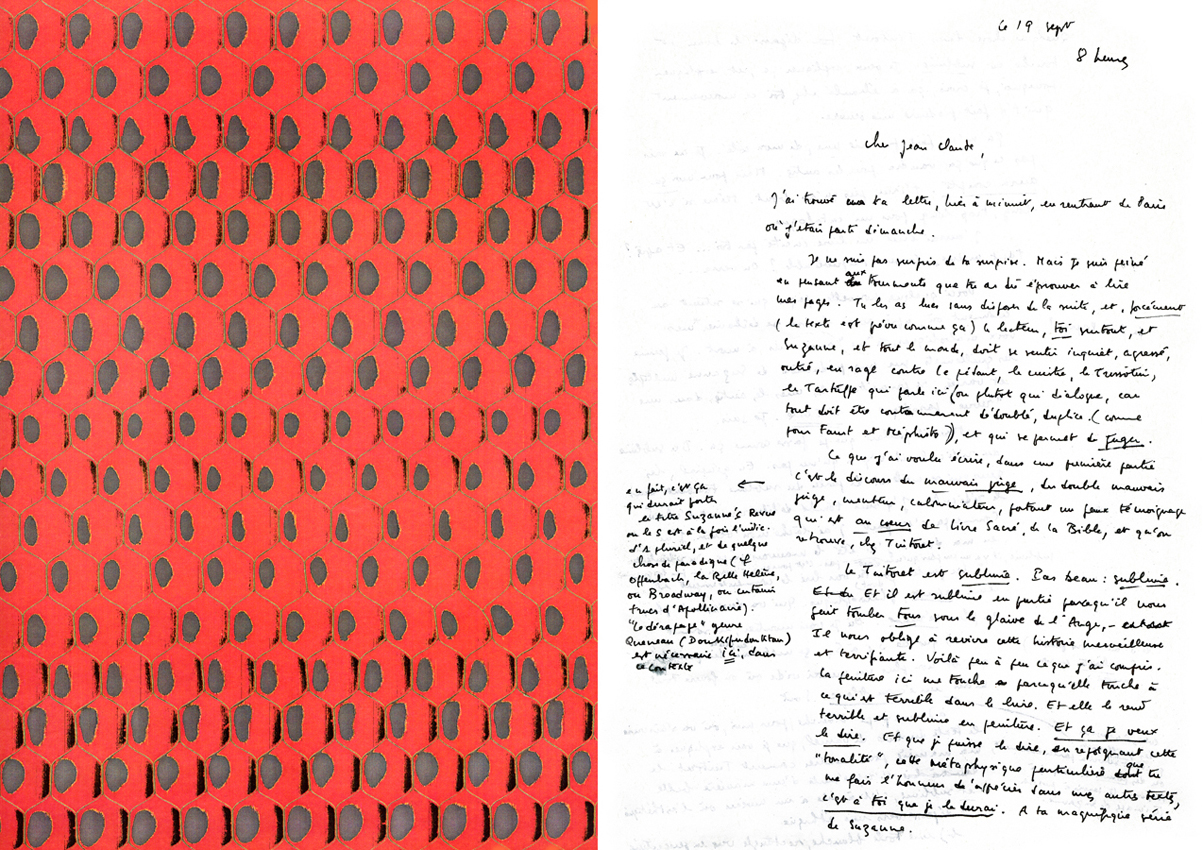 Le 19 sept
8 heures
Cher Jean Claude,
J'ai trouvé ta lettre, hier à minuit, en rentrant de Paris
où j'étais parti dimanche.
Je ne suis pas surpris de ta surprise. Mais je suis peiné
en pensant aux tourments que tu as dû éprouver à lire
mes pages. Tu les as lues sans disposer de la suite, et, forcément
(le texte est prévu comme ça) le lecteur, toi surtout, et
Suzanne, et tout le monde, doit se sentir inquiet, agressé,
outré, en rage contre le pédant, le cuistre, le Trissotin,
le Tartuffe qui parle ici (ou plutôt qui dialogue, car
tout doit être contamment dédoublé, duplice. (comme
pour Faust et Méphisto)), et qui se permet de juger.
Ce que j'ai voulu écrire, dans une première partie
c'est le discours du mauvais juge, du double mauvais
juge, menteur, calomniateur, portant un faux témoignage
qui est au cœur de Livre Sacré, de la Bible, et qu'on
retrouve, chez Tintoret.
en fait, c'est ça
qui devrait porter
le titre Suzanne's Revue
ou le S est à la fois l'indice
d'1 pluriel, et de quelque
chose de parodique (cf
Offenbach, la Belle Hélène,
ou Broadway, ou certains
trucs d'Apollinaire).
"Le dérapage" genre
Queneau (Doukipudonktan)
est nécessaire ici, dans
ce contexte
Le Tintoret est sublime. Pas beau : sublime.
Et il est sublime en partie parcequ'il nous
fait tomber tous sous le glaive de l'Ange,
Il nous oblige à revivre cette histoire merveilleuse
et terrifiante. Voilà peu à peu ce que j'ai compris.
la peinture ici me touche parcequ'elle touche à
ce qui est terrible dans le livre. Et elle le rend
terrible et sublime en peinture. Et ça je veux
le dire. Et que je puisse le dire, en rejoignant cette
"tonalité", cette métaphysique particulière que tu
me fais l'honneur d'apprécier dans mes autres textes,
c'est à toi que je le devrai. A ta magnifique série
de Suzanne.